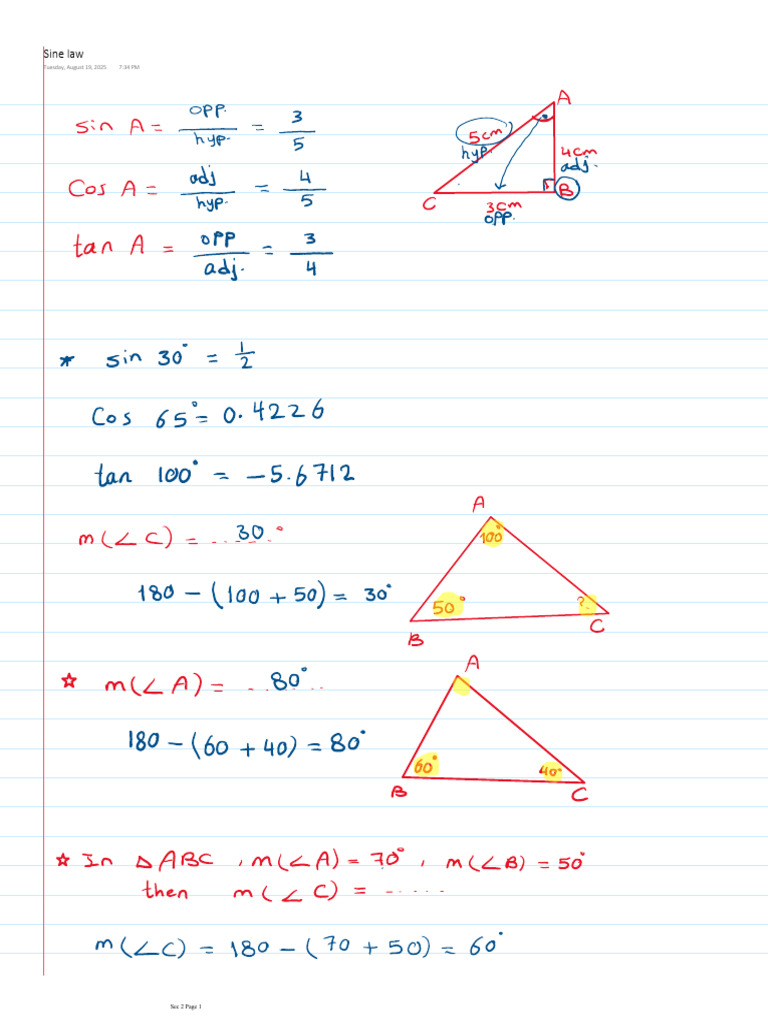 Sine law
Tuesday, August 19, 2025 7:34 PM
sin A = opp. / hyp. = 3 / 5
A
5cm
hyp.
4cm
adj.
B
C
3cm
opp.
Cos A = adj / hyp. = 4 / 5
tan A = opp / adj. = 3 / 4
* sin 30° = 1/2
Cos 65° = 0.4226
tan 100° = -5.6712
m(∠ C) = ..30...°
180 - (100 + 50) = 30°
A
100°
50°
?
B
C
☆ m(∠ A) = ..80°..
180 - (60 + 40) = 80°
A
60°
40°
B
C
☆ In △ ABC , m(∠A) = 70° , m(∠B) = 50°
then m(∠ C) = ......
m(∠C) = 180 - (70 + 50) = 60°
Sec 2 Page 1